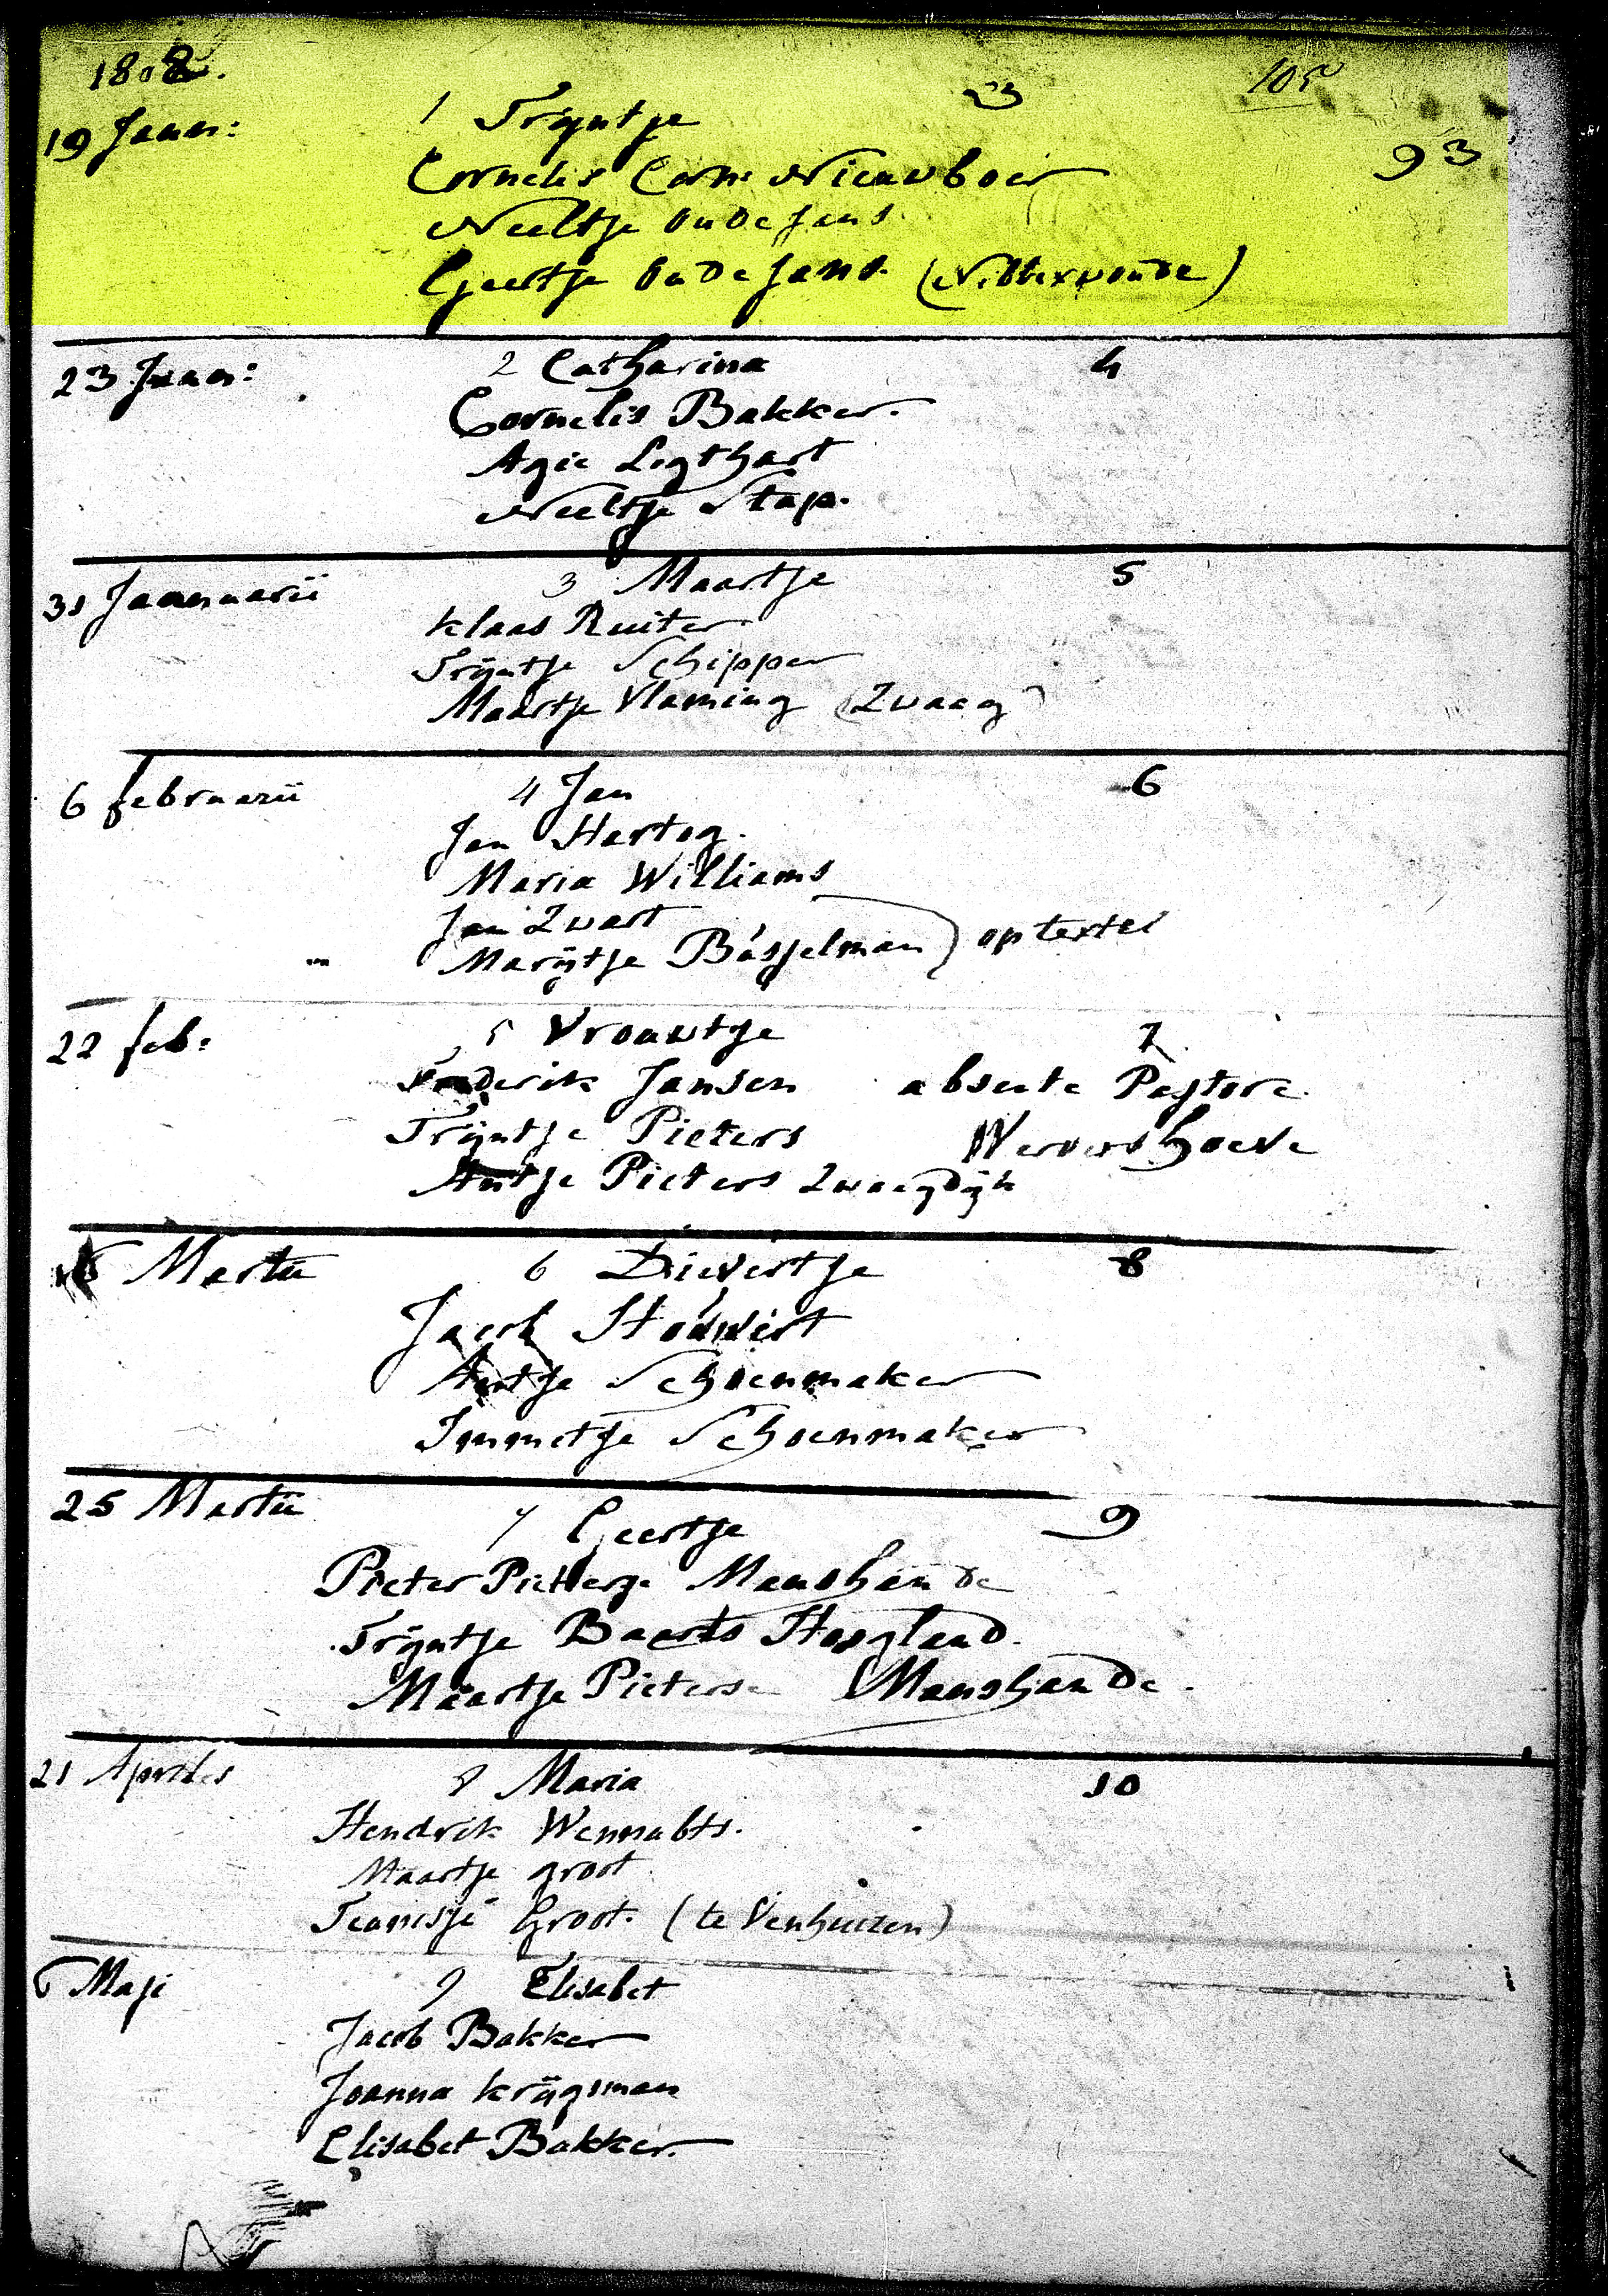 1808. 105
19 Janu: 1 Trijntje 23 93
Cornelis Corn: Nieuwboer
Neeltje Oudejans
Geertje Oudejans. (Nibbixwoude)
23 Janu: 2 Catharina 4
Cornelis Bakker.
Agie Ligthart
Neeltje Stap.
31 Jannuarii 3 Maartje 5
Klaas Ruiter
Trijntje Schipper
Maartje Vlaming (Zwaag)
6 februarii 4 Jan 6
Jan Hartog.
Maria Williams
Jan Zwart
Marijtje Basjelman) op textel
22 feb: 5 Vrouwtje 7
Frederik Jansen absente Pastore.
Trijntje Pieters Wervershoeve
Antje Pieters Zwaagdijk
Martii 6 Dievertje 8
Jacob
Aertje Schoenmaker
Immetje Schoenmaker
25 Martii 7 Geertje 9
Pieter Pieterze Manshande
Trijntje Baerts Hoogland.
Maartje Pieterse Manshande.
21 Apriles 8 Maria 10
Hendrik
Maartje groot
Groot. (te Venhuizen)
6 Maji 9 Elisabet
Jacob Bakker
Joanna Krijgsman
Elisabet Bakker.